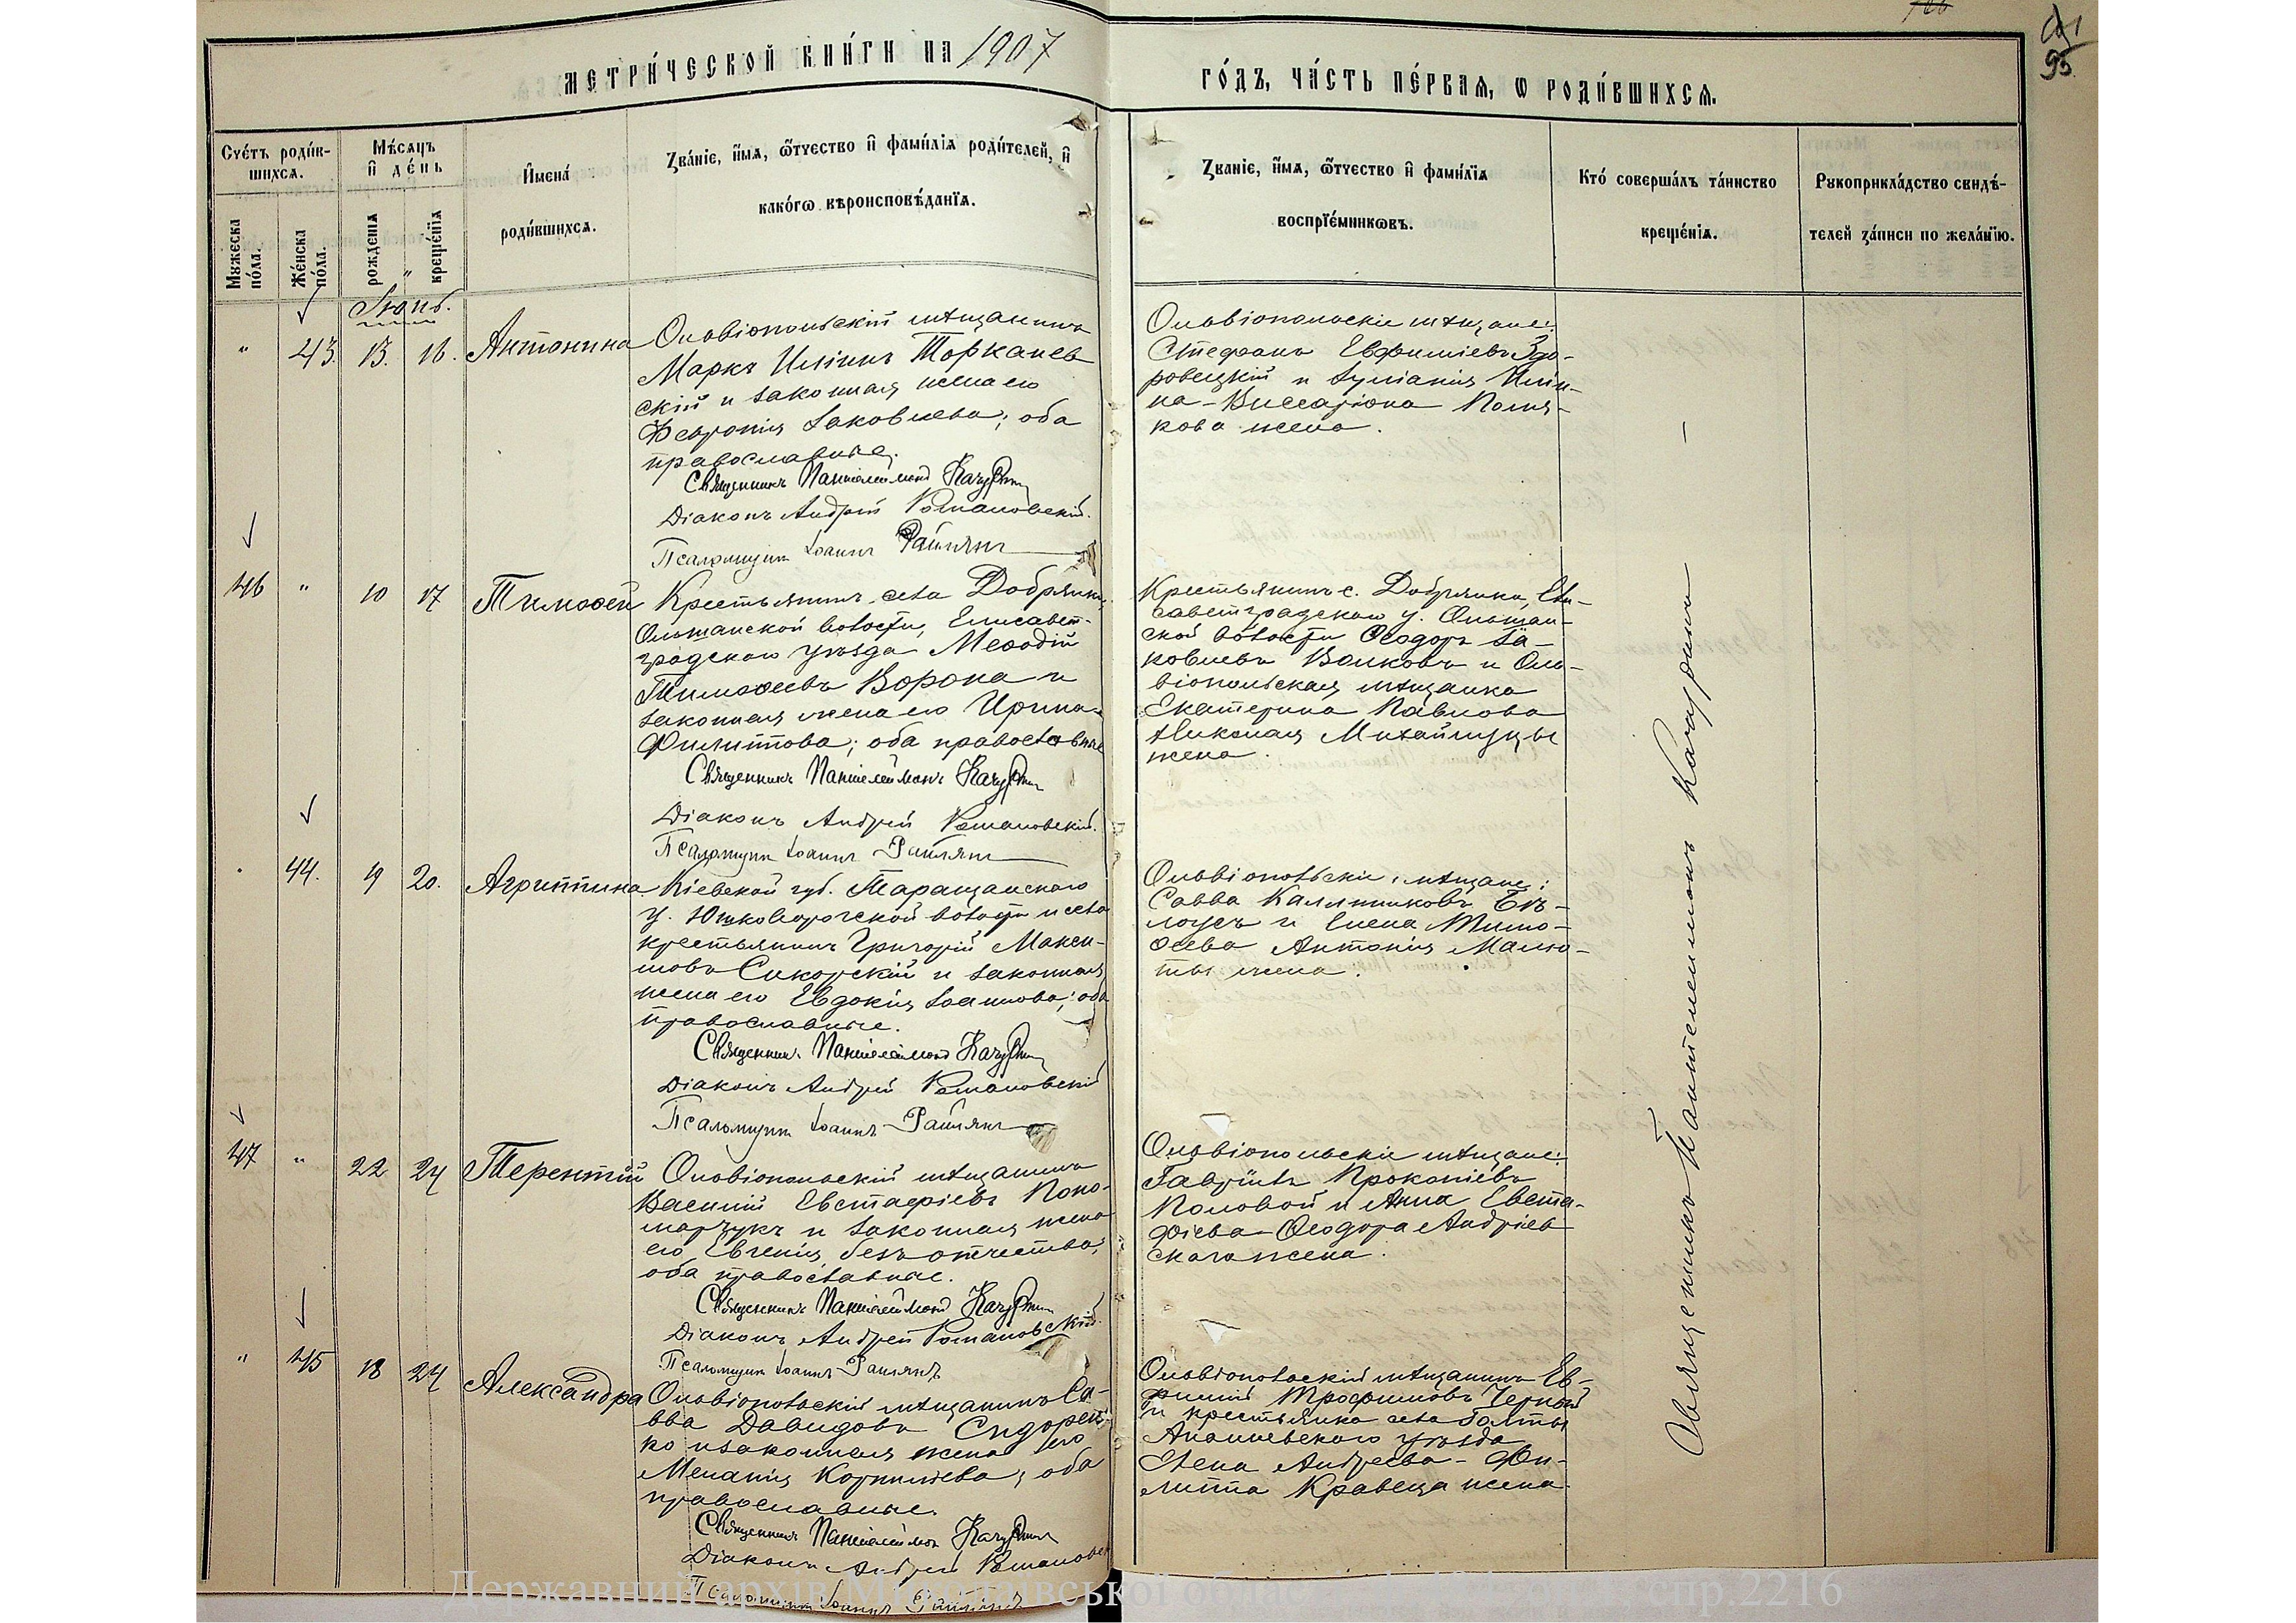 МЕТРИ́ЧЕСКОЙ КНИ́ГИ НА 1907
ГО́ДЪ, ЧА́СТЬ ПЕ́РВАѦ, Ѡ РОДИ́ВШИХСѦ.
95
Счётъ роди́в-
шихсѧ.
Мꙋжеска
по́ла.
Же́нска
по́ла.
Мѣ́сѧцъ
и҆ де́нь
рожде́нїѧ
креще́нїѧ
И҆мена́
роди́вшихсѧ.
Зва́нїе, и҆́мѧ, ѻ҆́тчество и҆ фами́лїѧ роди́телей, и҆
како́гѡ вѣроисповѣ́данїѧ.
Зва́нїе, и҆́мѧ, ѻ҆́тчество и҆ фами́лїѧ
воспрїе́мникѡвъ.
Кто́ соверша́лъ та́инство
креще́нїѧ.
Рꙋкоприкла́дство свидѣ́-
телей за́писи по жела́нїю.
Іюнь.
" 43. 13. 16. Антонина
Ольвіопольскій мѣщанинъ
Маркъ Иліинъ Торканев
скій и законная жена его
Февронія Іаковлева; оба
православные.
Священникъ Пантелеймонъ Качурин
Діаконъ Андрей Романовскій.
Псаломщикъ Іоаннъ Райлянъ
Ольвіопольскіе мѣщане:
Стефанъ Евфиміевъ Здо-
ровецкій и Іуліанія Иліи-
на - Виссаріона Поля-
кова жена.
46 " 10 17 Тимофей
Крестьянинъ села Добрянки
Ольшанской волости, Елисавет-
градскаго уѣзда Меѳодій
Тимоѳеевъ Ворона и
законная жена его Ирина
Филиппова; оба православные
Священникъ Пантелеймонъ Качурин
Діаконъ Андрей Романовскій.
Псаломщикъ Іоаннъ Райлянъ
Крестьянинъ с. Добрянки, Ели-
саветградскаго у. Ольшан-
ской волости Ѳеодоръ Іа-
ковлевъ Волковъ и Оль-
віопольская мѣщанка
Екатерина Павлова
Николая Михайлуцы
жена.
44. 19 20. Агриппина
Кіевской губ. Таращанскаго
у. волости и села
крестьянинъ Григорій Макси-
мовъ Сикорскій и законная
жена его Евдокія Іоаннова; оба
православные.
Священникъ Пантелеймонъ Качурин
Діаконъ Андрей Романовскій
Псаломщикъ Іоаннъ Райлянъ
Ольвіопольскіе мѣщане:
Савва Каллиниковъ Бѣ-
лоусъ и Елена Тимо-
ѳеева Антонія Малю-
ты жена.
47 " 22 24 Терентій
Ольвіопольскій мѣщанинъ
Василій Евстафіевъ Поно-
марчукъ и законная жена
его Евгенія, безъ отчества;
оба православные.
Священникъ Пантелеймонъ Качурин
Діаконъ Андрей Романовскій.
Псаломщикъ Іоаннъ Райлянъ
Ольвіопольскіе мѣщане:
Гавріилъ Прокопіевъ
Половой и Анна Евста-
фіева - Ѳеодора Андріев
скаго жена.
" 45 18 24 Александра
Ольвіопольскій мѣщанинъ Са-
вва Давидовъ Сидорен-
ко и законная жена его
Меланія Корниліева; оба
православные.
Священникъ Пантелеймонъ Качурин
Діаконъ Андрей Романов
Псаломщикъ Іоаннъ Райлянъ
Ольвіопольскій мѣщанинъ Ев-
фимій Трофимовъ Черный
и крестьянка села Болты
Ананьевскаго уѣзда
Елена Андреева - Фи-
липпа Кравеца жена.
Священникъ Пантелеимонъ Качуринъ
Державний архів Миколаївської спр.2216